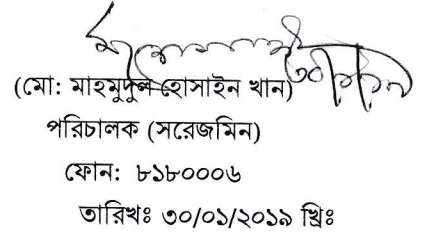 (মো: মাহমুদুল হোসাইন খান)
পরিচালক (সরেজমিন)
ফোন: ৮১৮০০০৬
তারিখঃ ৩০/০১/২০১৯ খ্রিঃ